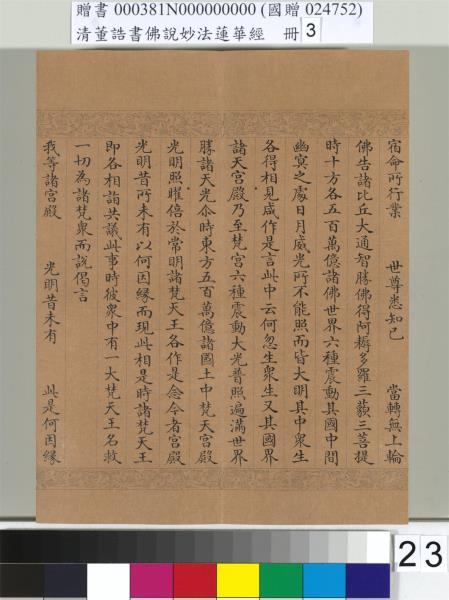 贈書 000381N000000000 (國贈 024752)
清董誥書佛說妙法蓮華經 冊 3
宿命所行業 世尊悉知已 當轉無上輪
佛告諸比丘大通智勝佛得阿耨多羅三藐三菩提
時十方各五百萬億諸佛世界六種震動其國中間
幽冥之處日月威光所不能照而皆大明其中眾生
各得相見咸作是言此中云何忽生眾生又其國界
諸天宮殿乃至梵宮六種震動大光普照遍滿世界
勝諸天光尒時東方五百萬億諸國土中梵天宮殿
光明照曜倍於常明諸梵天王各作是念今者宮殿
光明昔所未有以何因緣而現此相是時諸梵天王
即各相詣共議此事時彼眾中有一大梵天王名救
一切為諸梵眾而說偈言
我等諸宮殿 光明昔未有 此是何因緣
23